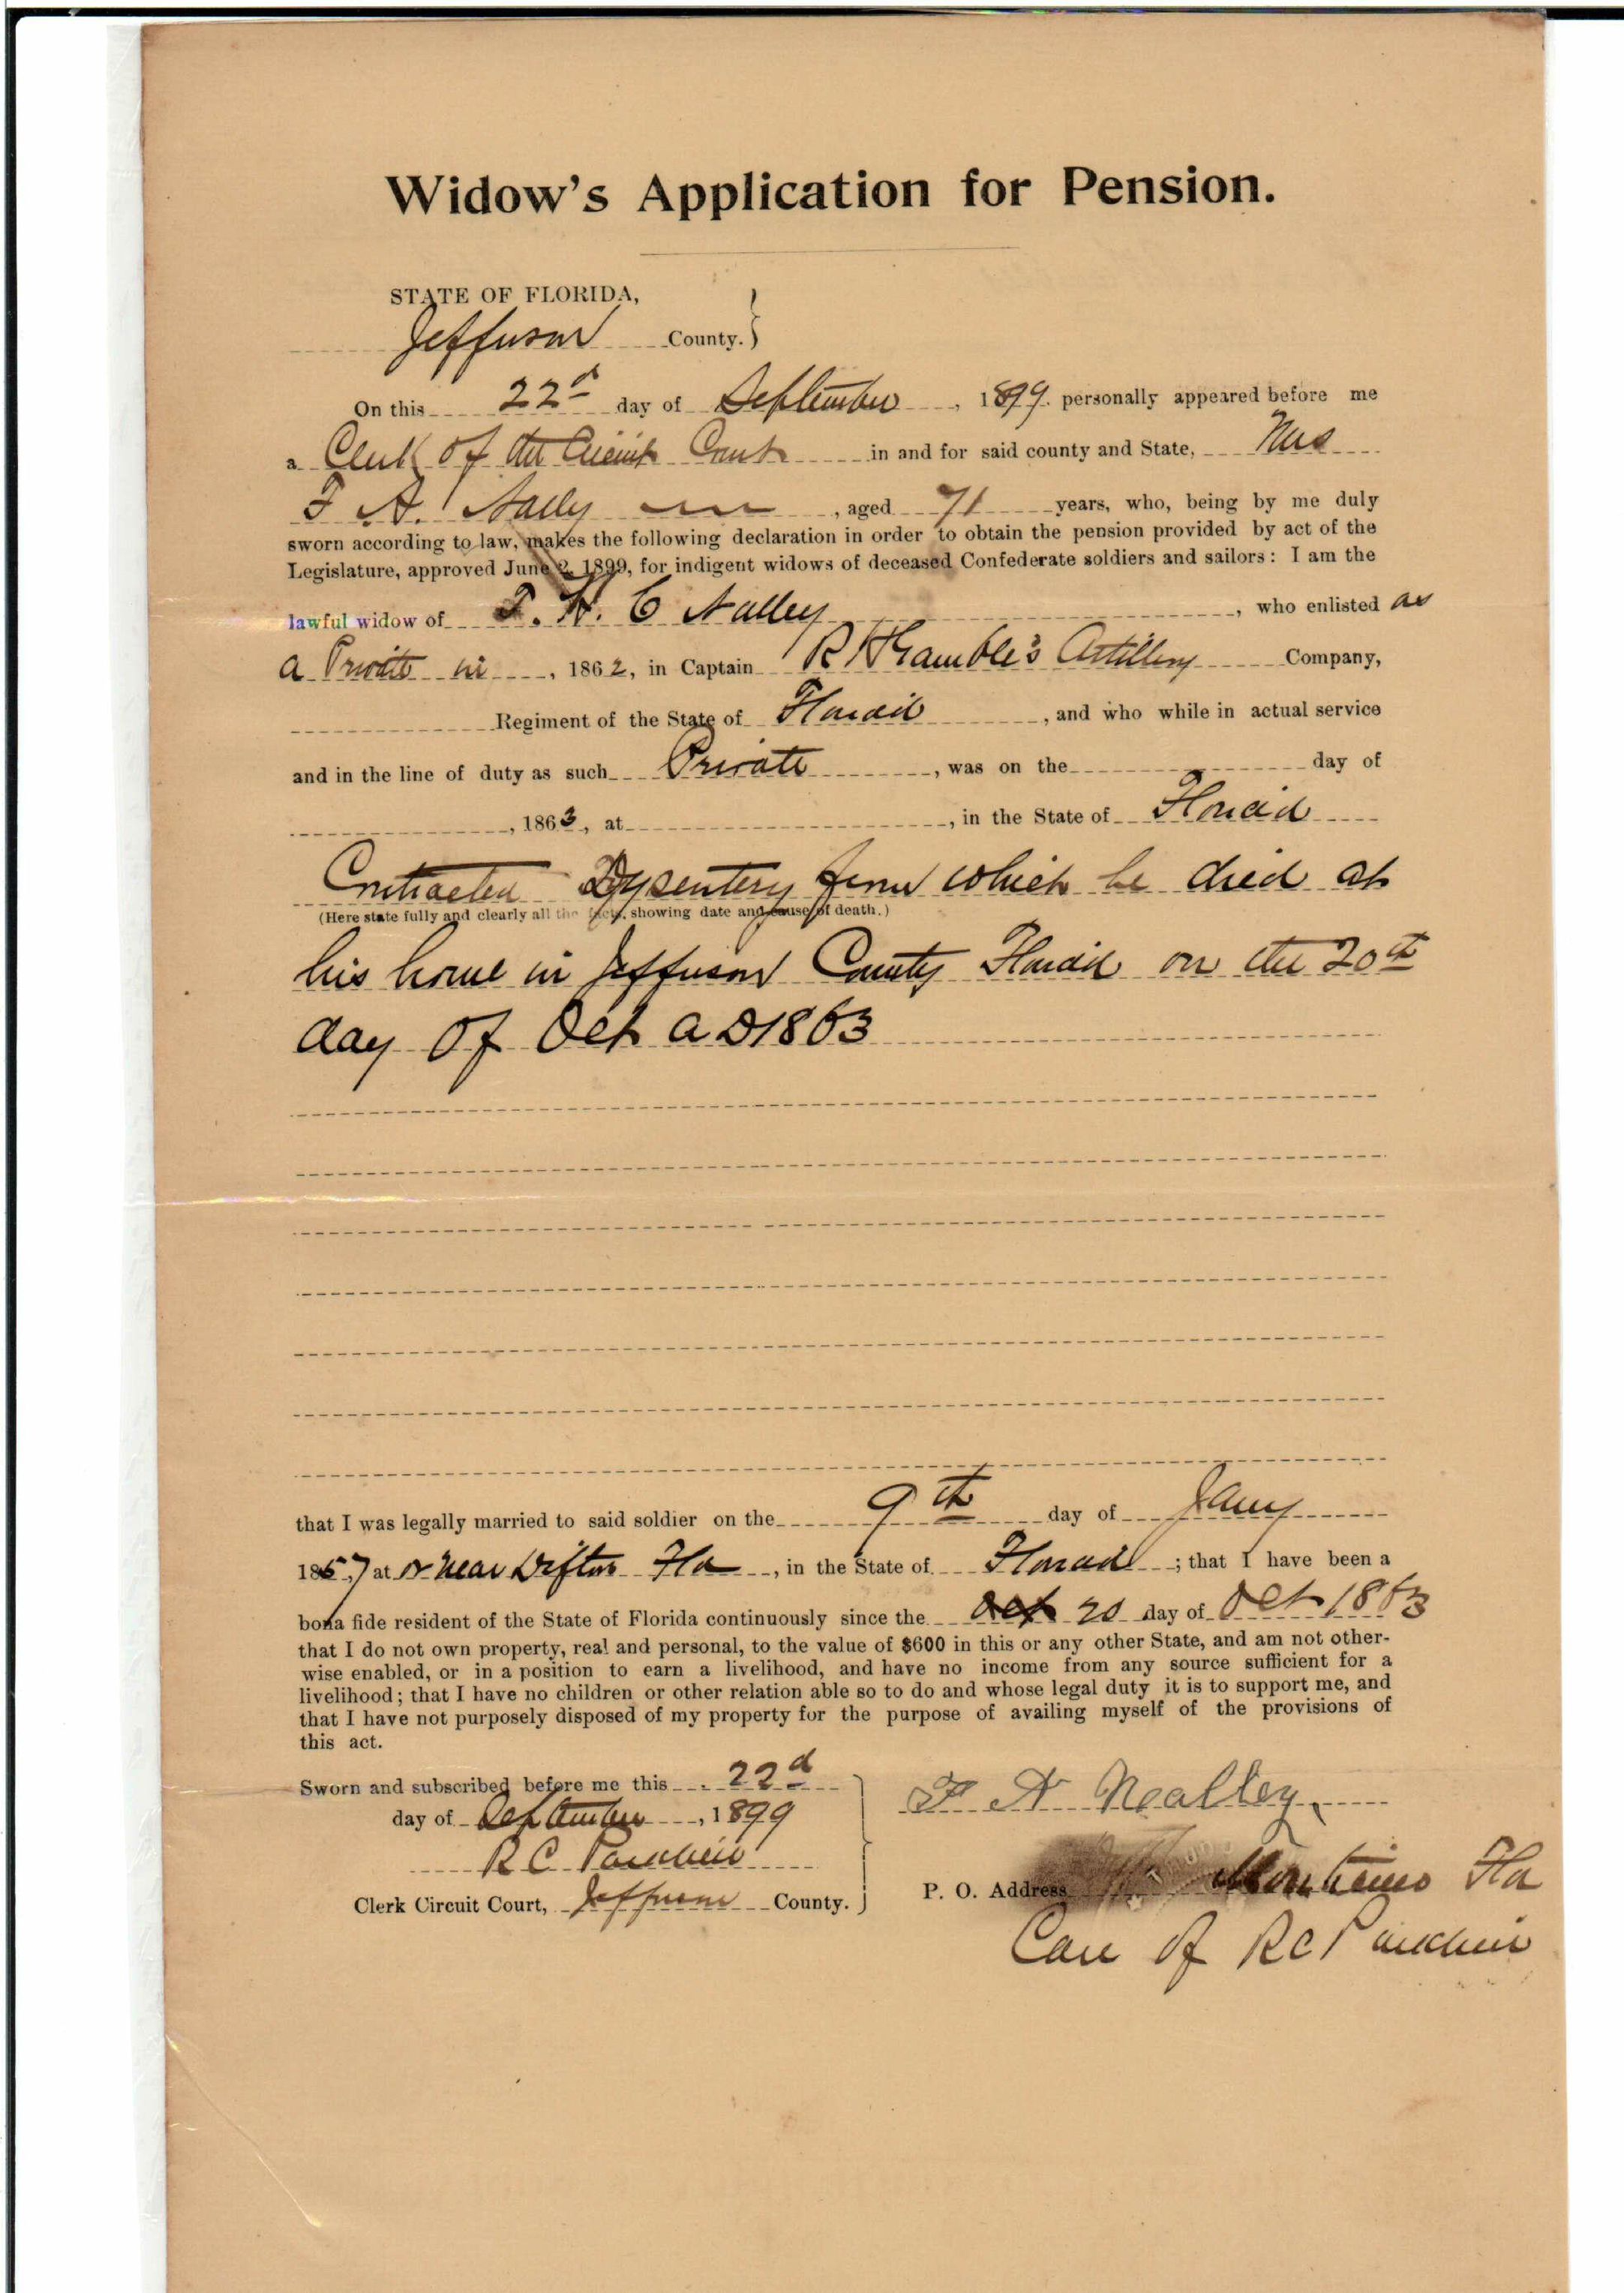 Widow's Application for Pension.
STATE OF FLORIDA,
Jefferson County.
On this 22d day of September, 1899. personally appeared before me
a Clerk of the Circuit Court in and for said county and State, Mrs
F A. Nally, aged 71 years, who, being by me duly
sworn according to law, makes the following declaration in order to obtain the pension provided by act of the
Legislature, approved June 2, 1899, for indigent widows of deceased Confederate soldiers and sailors: I am the
lawful widow of T. W. C Nalley, who enlisted as
a Private in, 1862, in Captain R H Gamble's Artillery Company,
Regiment of the State of Florida, and who while in actual service
and in the line of duty as such Private, was on the day of
, 1863, at, in the State of Florida
Contracted Dysentery from which he died at
(Here state fully and clearly all the facts, showing date and cause of death.)
his home in Jefferson County Florida on the 20th
day of Oct A D 1863
that I was legally married to said soldier on the 9th day of Jany
1857, at or near Drifton Fla, in the State of Florida; that I have been a
bona fide resident of the State of Florida continuously since the Oct 20 day of Oct 1863
that I do not own property, real and personal, to the value of $600 in this or any other State, and am not other-
wise enabled, or in a position to earn a livelihood, and have no income from any source sufficient for a
livelihood; that I have no children or other relation able so to do and whose legal duty it is to support me, and
that I have not purposely disposed of my property for the purpose of availing myself of the provisions of
this act.
Sworn and subscribed before me this 22d
day of September, 1899
R C Parkhill
Clerk Circuit Court, Jefferson County.
F A Nealley
P. O. Address Monticello Fla
Care of R C Parkhill